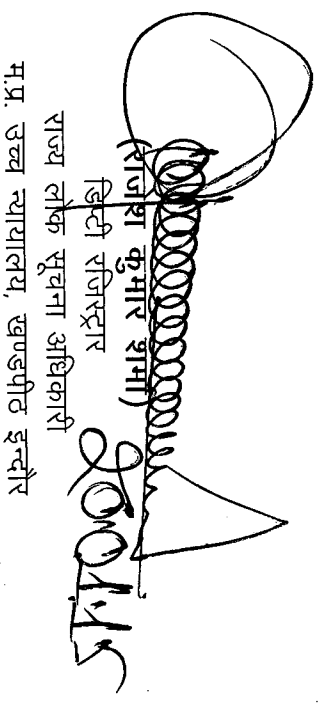 (राजेश कुमार शर्मा)
डिप्टी रजिस्ट्रार
राज्य लोक सूचना अधिकारी
म.प्र. उच्च न्यायालय, खण्डपीठ इन्दौर